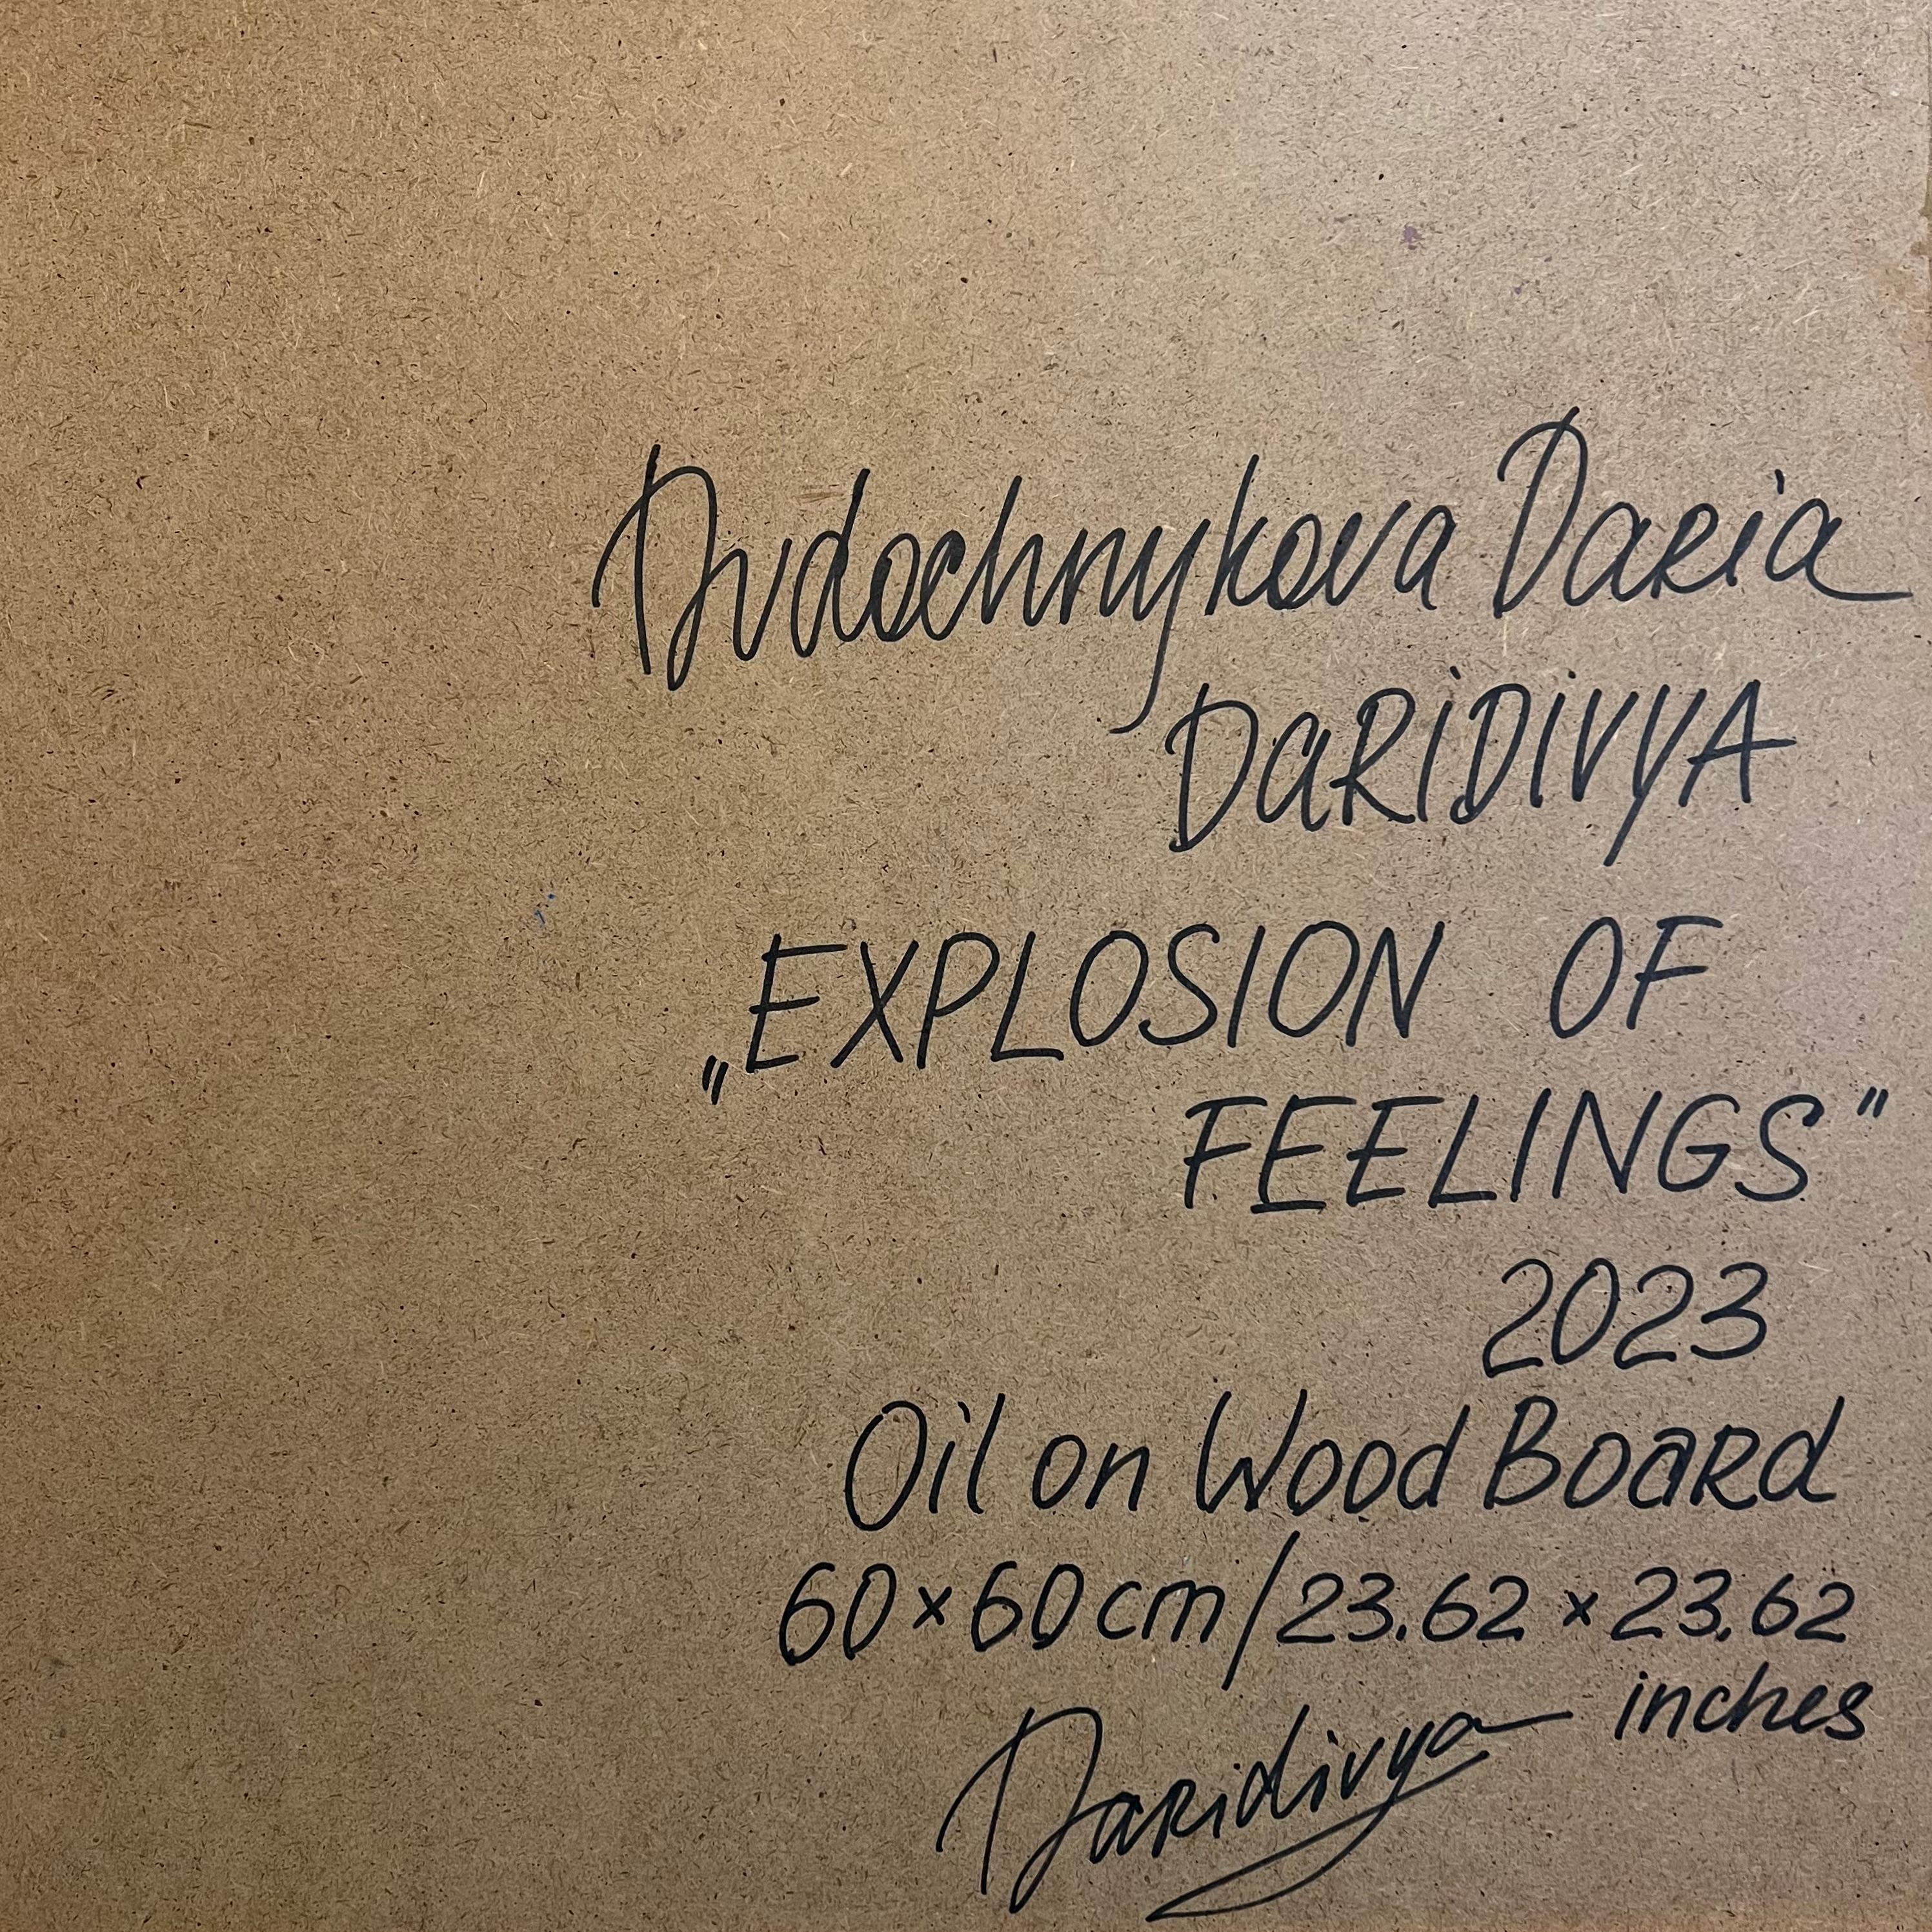 Dudochnykova Daria
DARIDIVYA
„EXPLOSION OF
FEELINGS"
2023
Oil on Wood Board
60×60 cm/23.62 × 23.62
inches
Daridivya